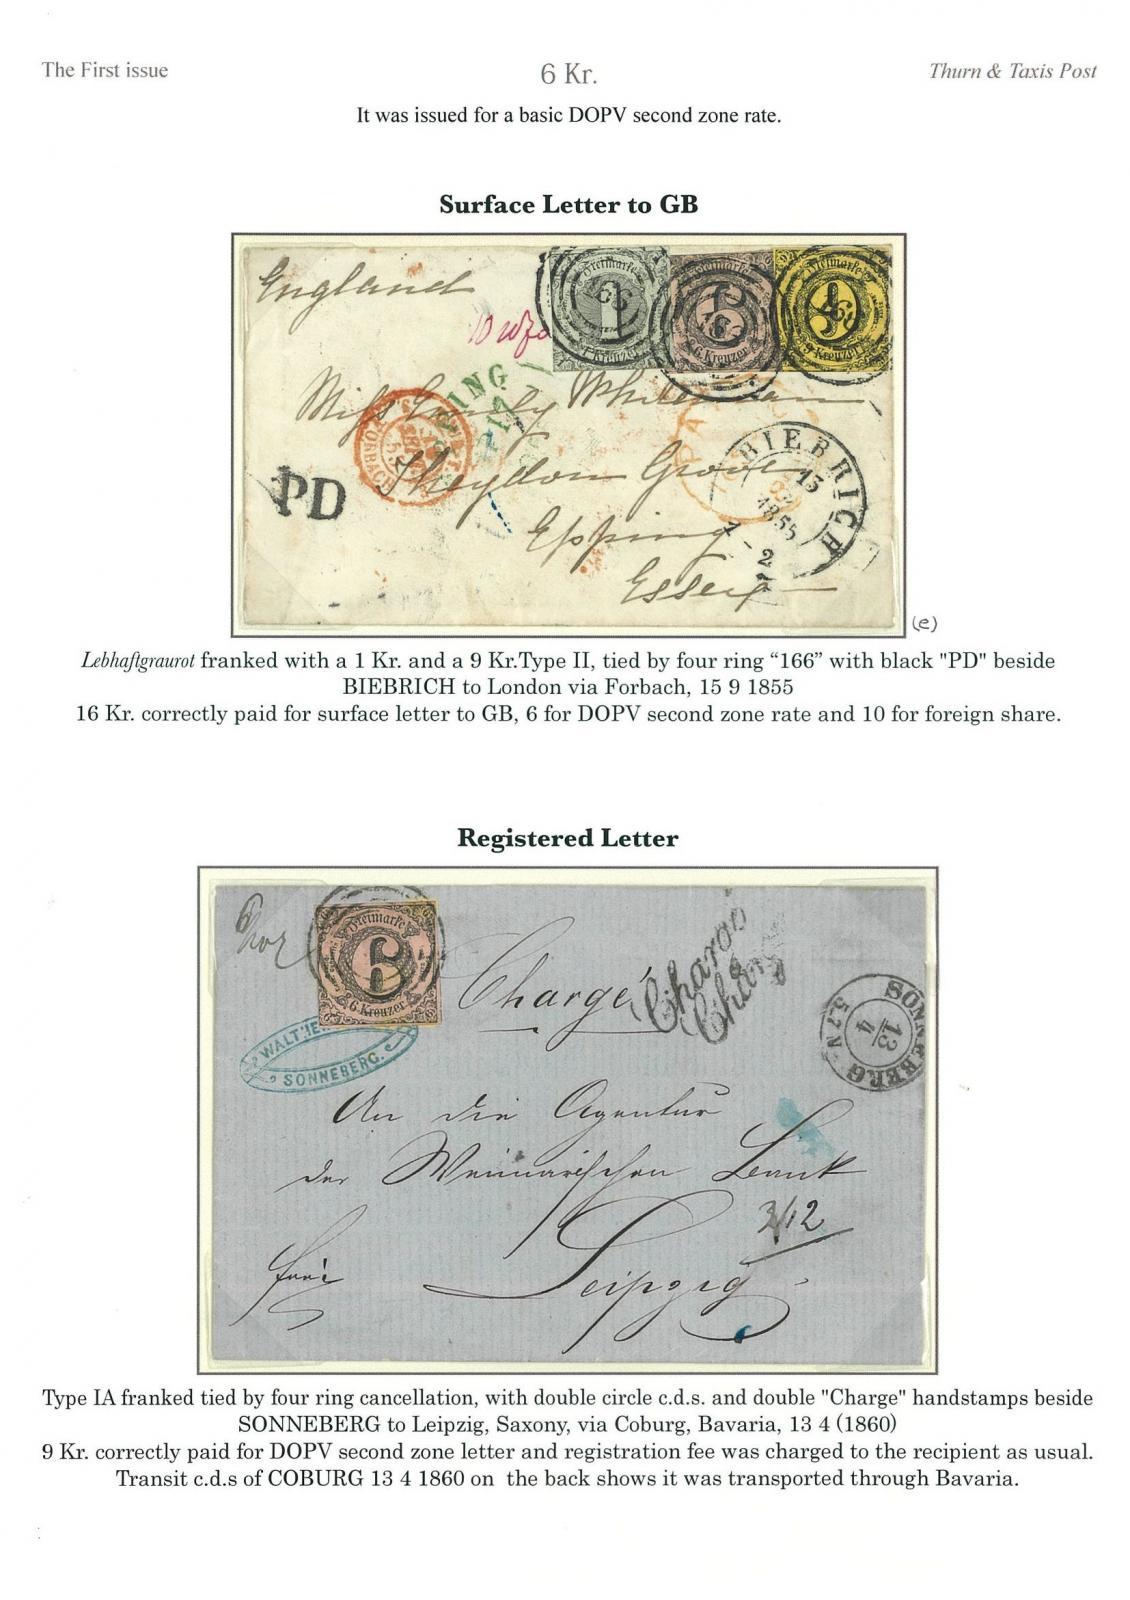 The First issue
6 Kr.
Thurn & Taxis Post
It was issued for a basic DOPV second zone rate.
Surface Letter to GB
England
Freimarke Freimarke Freimarke
166 166 166
1 6 9
1 Kreuzer 6. Kreuzer 9 Kreuzer
Miss Emily
EPPING
Theydon Grove
BIEBRICH
15
1855
PD
Epping
Essex
(e)
Lebhaftgraurot franked with a 1 Kr. and a 9 Kr.Type II, tied by four ring “166” with black "PD" beside
BIEBRICH to London via Forbach, 15 9 1855
16 Kr. correctly paid for surface letter to GB, 6 for DOPV second zone rate and 10 for foreign share.
Registered Letter
Freimarke
6
6 Kreuzer
Chargé
Chargé
Chargé
SONNEBERG
13
4
SONNEBERG.
An die Agentur
der Weimarischen Bank
Leipzig
frei
Type IA franked tied by four ring cancellation, with double circle c.d.s. and double "Charge" handstamps beside
SONNEBERG to Leipzig, Saxony, via Coburg, Bavaria, 13 4 (1860)
9 Kr. correctly paid for DOPV second zone letter and registration fee was charged to the recipient as usual.
Transit c.d.s of COBURG 13 4 1860 on the back shows it was transported through Bavaria.